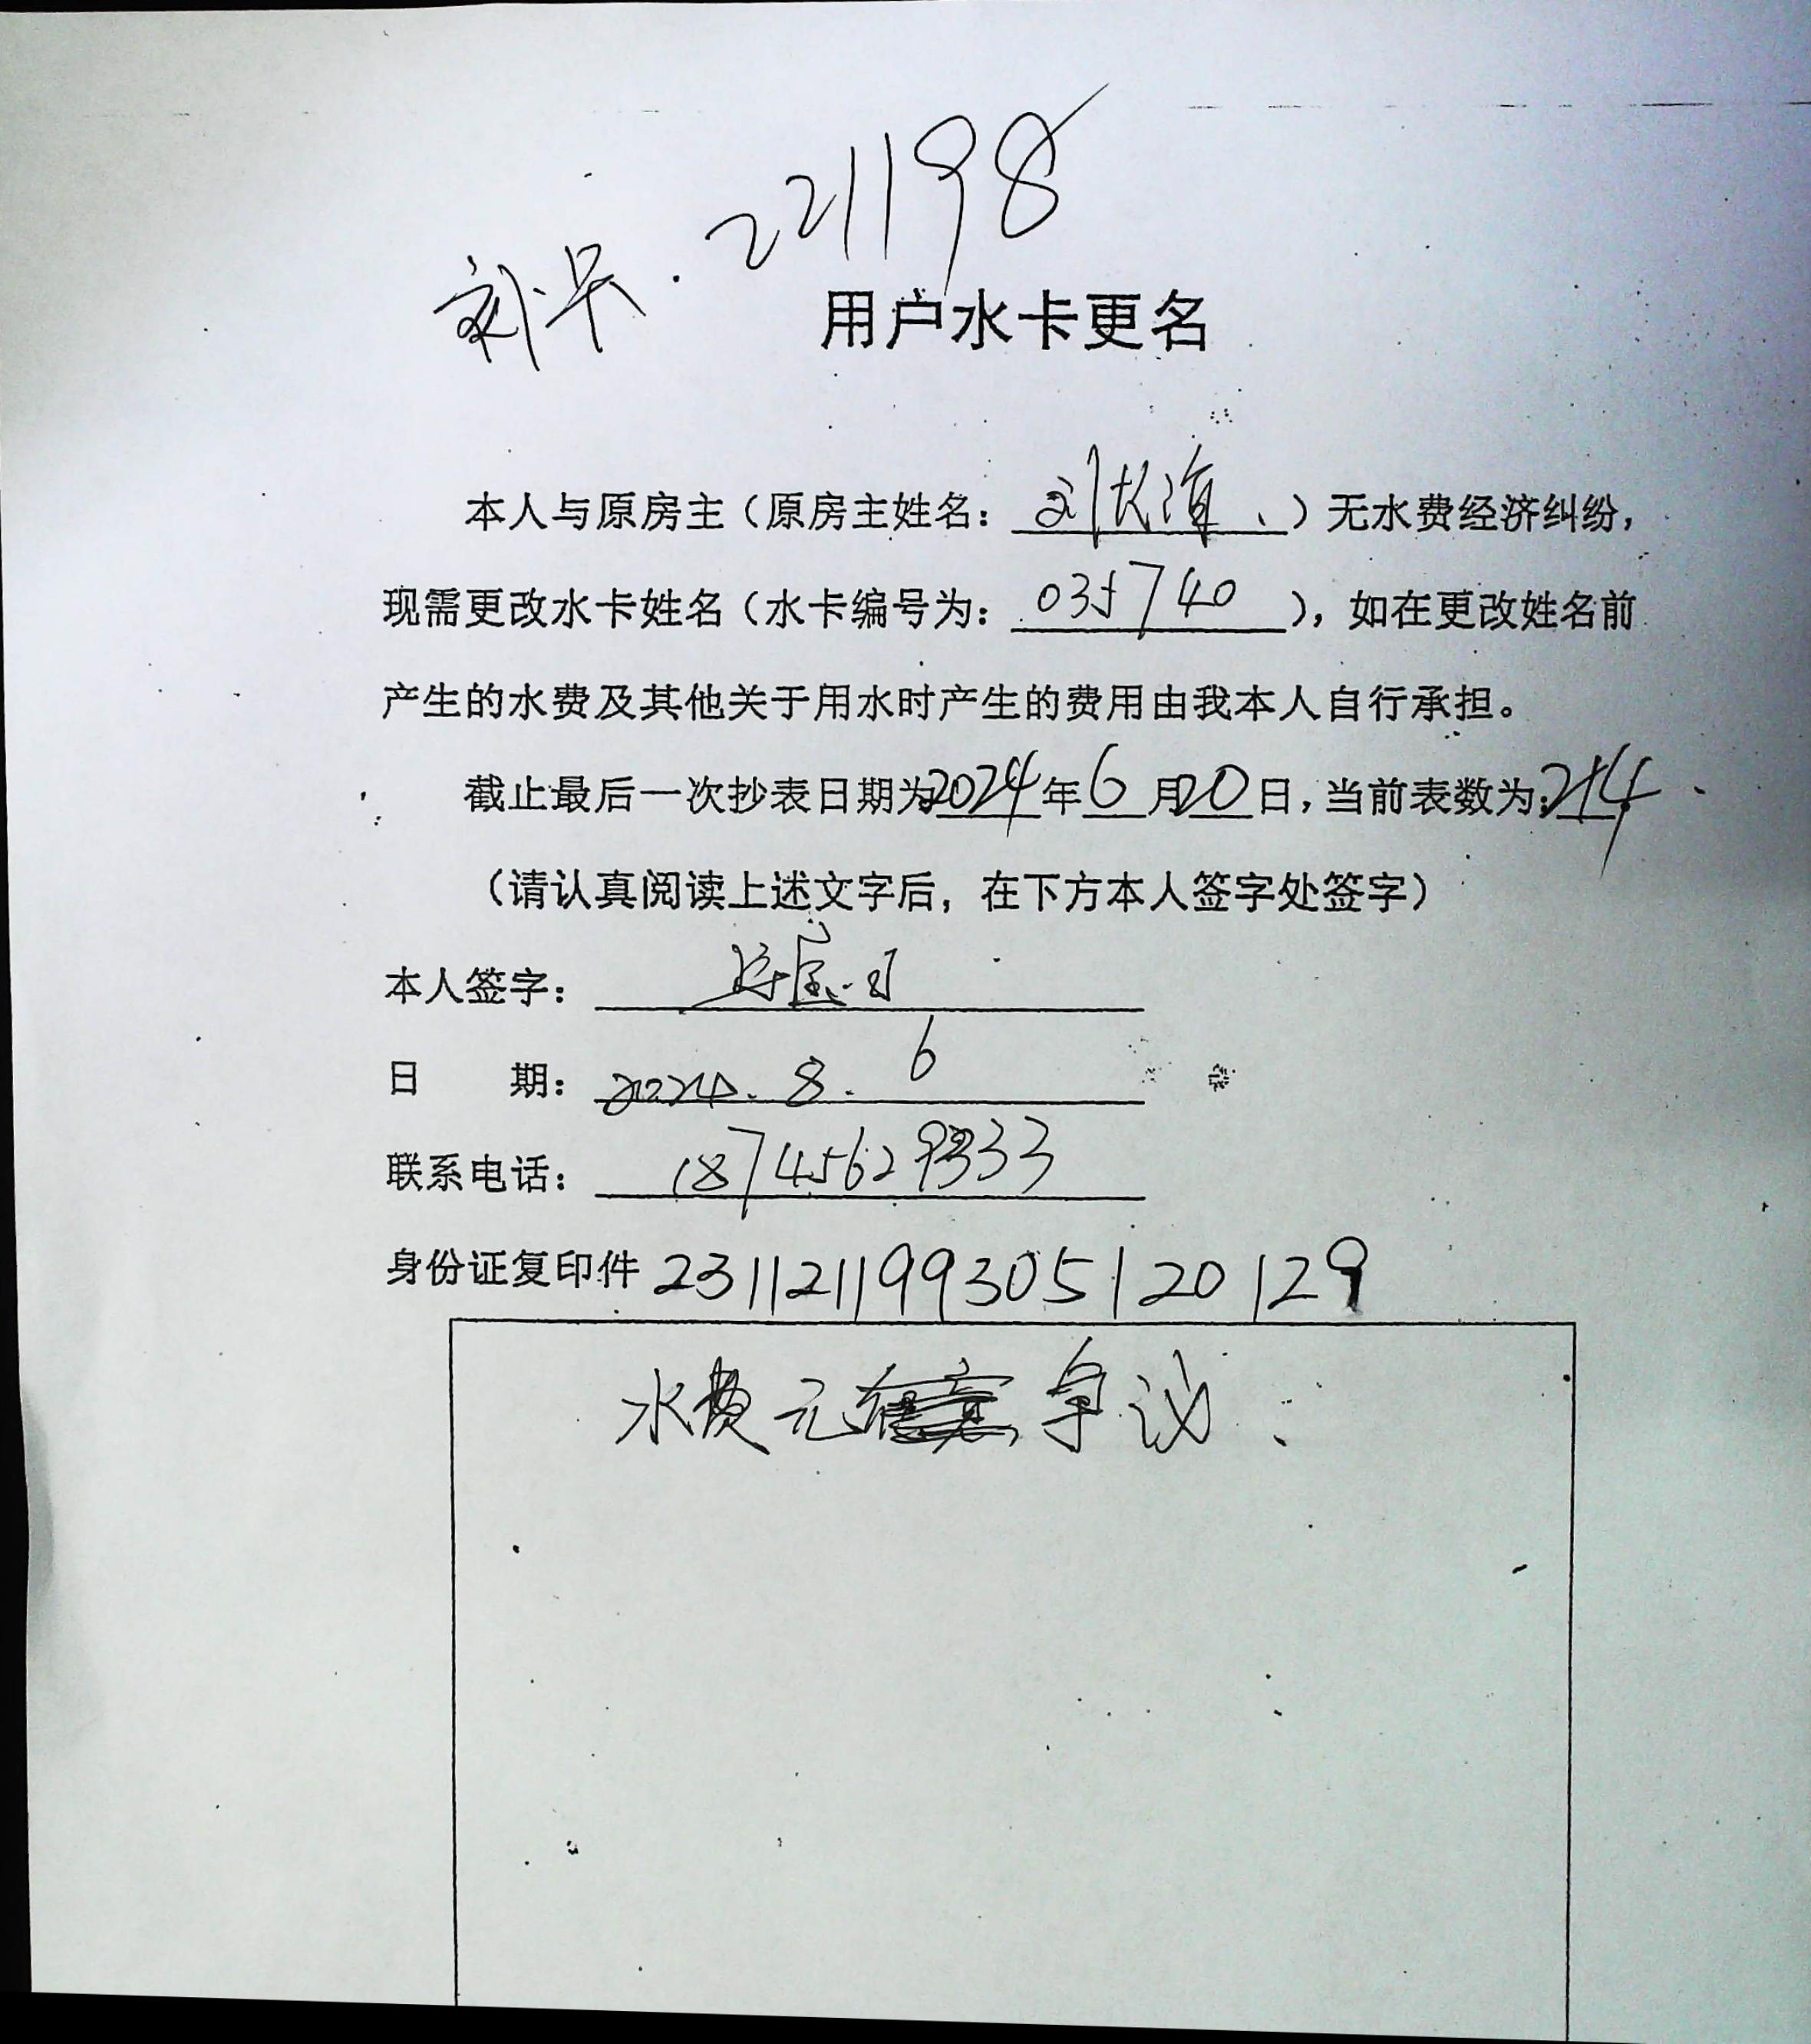 新卡.221198
用户水卡更名
本人与原房主（原房主姓名：刘长海、）无水费经济纠纷，
现需更改水卡姓名（水卡编号为：035740），如在更改姓名前
产生的水费及其他关于用水时产生的费用由我本人自行承担。
截止最后一次抄表日期为2024年6月20日，当前表数为：214
（请认真阅读上述文字后，在下方本人签字处签字）
本人签字：
日 期：2024.8.6
联系电话：18745629333
身份证复印件 231121199305120129
水费无争议